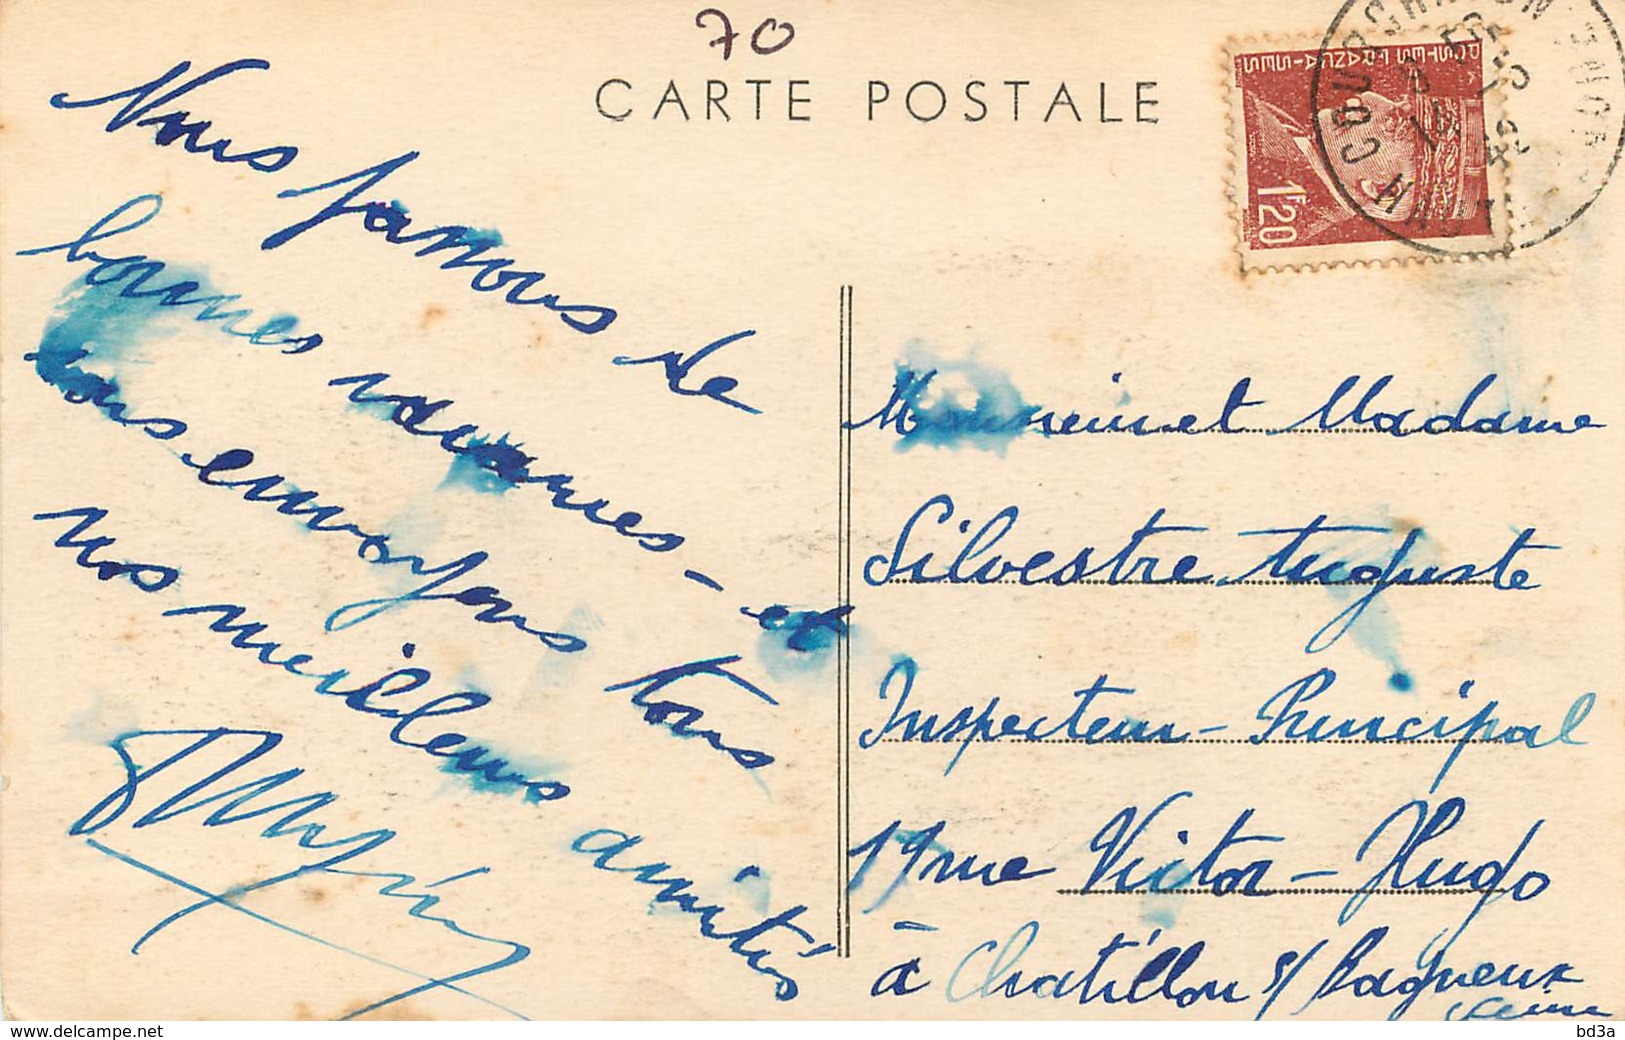 70
CARTE POSTALE
POSTES FRANÇAISES
1F20
42
Nous passons de
bonnes vacances - et
vous envoyons tous
nos meilleurs amitiés
Monsieur et Madame
Silvestre Auguste
Inspecteur - Principal
19 rue Victor - Hugo
à Chatillon s/ Bagneux
Seine
delcampe.net
bd3a